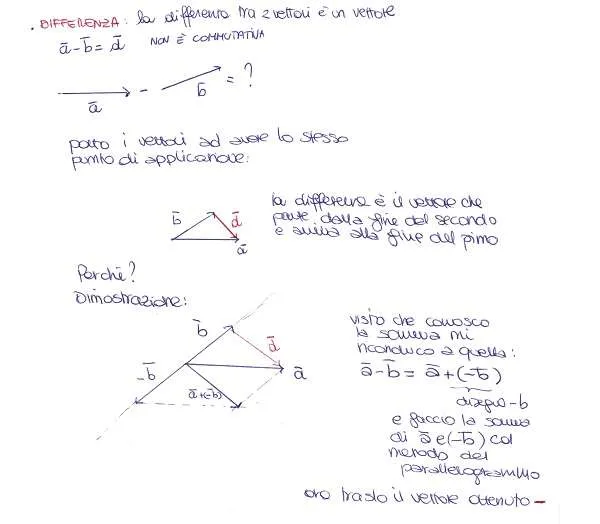 . DIFFERENZA: la differenza tra 2 vettori è un vettore
a̅ - b̅ = d̅ NON È COMMUTATIVA
a̅ - b̅ = ?
porto i vettori ad avere lo stesso
punto di applicazione:
b̅ d̅ a̅
la differenza è il vettore che
parte dalla fine del secondo
e arriva alla fine del pimo
Perché?
Dimostrazione:
b̅
d̅
-b̅
a̅
a̅+(-b̅)
visto che conosco
la somma mi
riconduco a quella:
a̅ - b̅ = a̅ + (-b̅)
disegno -b
e faccio la somma
di a̅ e (-b̅) col
metodo del
parallelogrammo
ora traslo il vettore ottenuto -